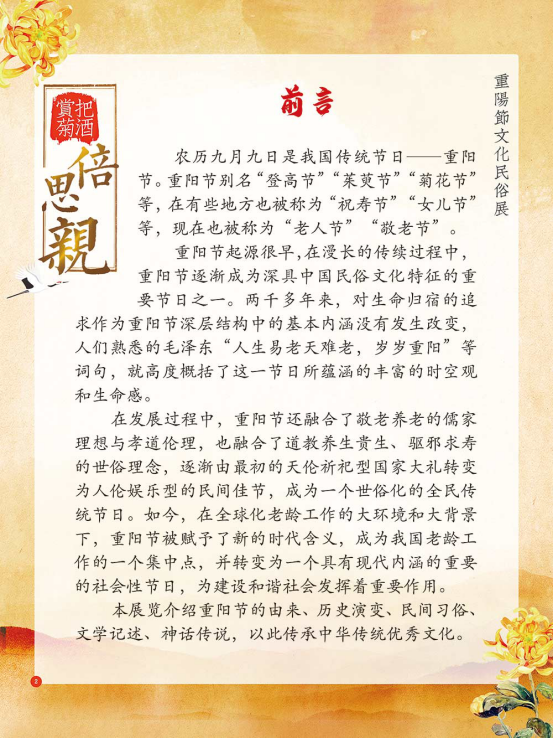 重陽節文化民俗展
把酒
賞菊
倍
思
親
前言
农历九月九日是我国传统节日——重阳
节。重阳节别名“登高节”“茱萸节”“菊花节”
等，在有些地方也被称为“祝寿节”“女儿节”
等，现在也被称为“老人节”“敬老节”。
重阳节起源很早，在漫长的传续过程中，
重阳节逐渐成为深具中国民俗文化特征的重
要节日之一。两千多年来，对生命归宿的追
求作为重阳节深层结构中的基本内涵没有发生改变，
人们熟悉的毛泽东“人生易老天难老，岁岁重阳”等
词句，就高度概括了这一节日所蕴涵的丰富的时空观
和生命感。
在发展过程中，重阳节还融合了敬老养老的儒家
理想与孝道伦理，也融合了道教养生贵生、驱邪求寿
的世俗理念，逐渐由最初的天伦祈祀型国家大礼转变
为人伦娱乐型的民间佳节，成为一个世俗化的全民传
统节日。如今，在全球化老龄工作的大环境和大背景
下，重阳节被赋予了新的时代含义，成为我国老龄工
作的一个集中点，并转变为一个具有现代内涵的重要
的社会性节日，为建设和谐社会发挥着重要作用。
本展览介绍重阳节的由来、历史演变、民间习俗、
文学记述、神话传说，以此传承中华传统优秀文化。
2